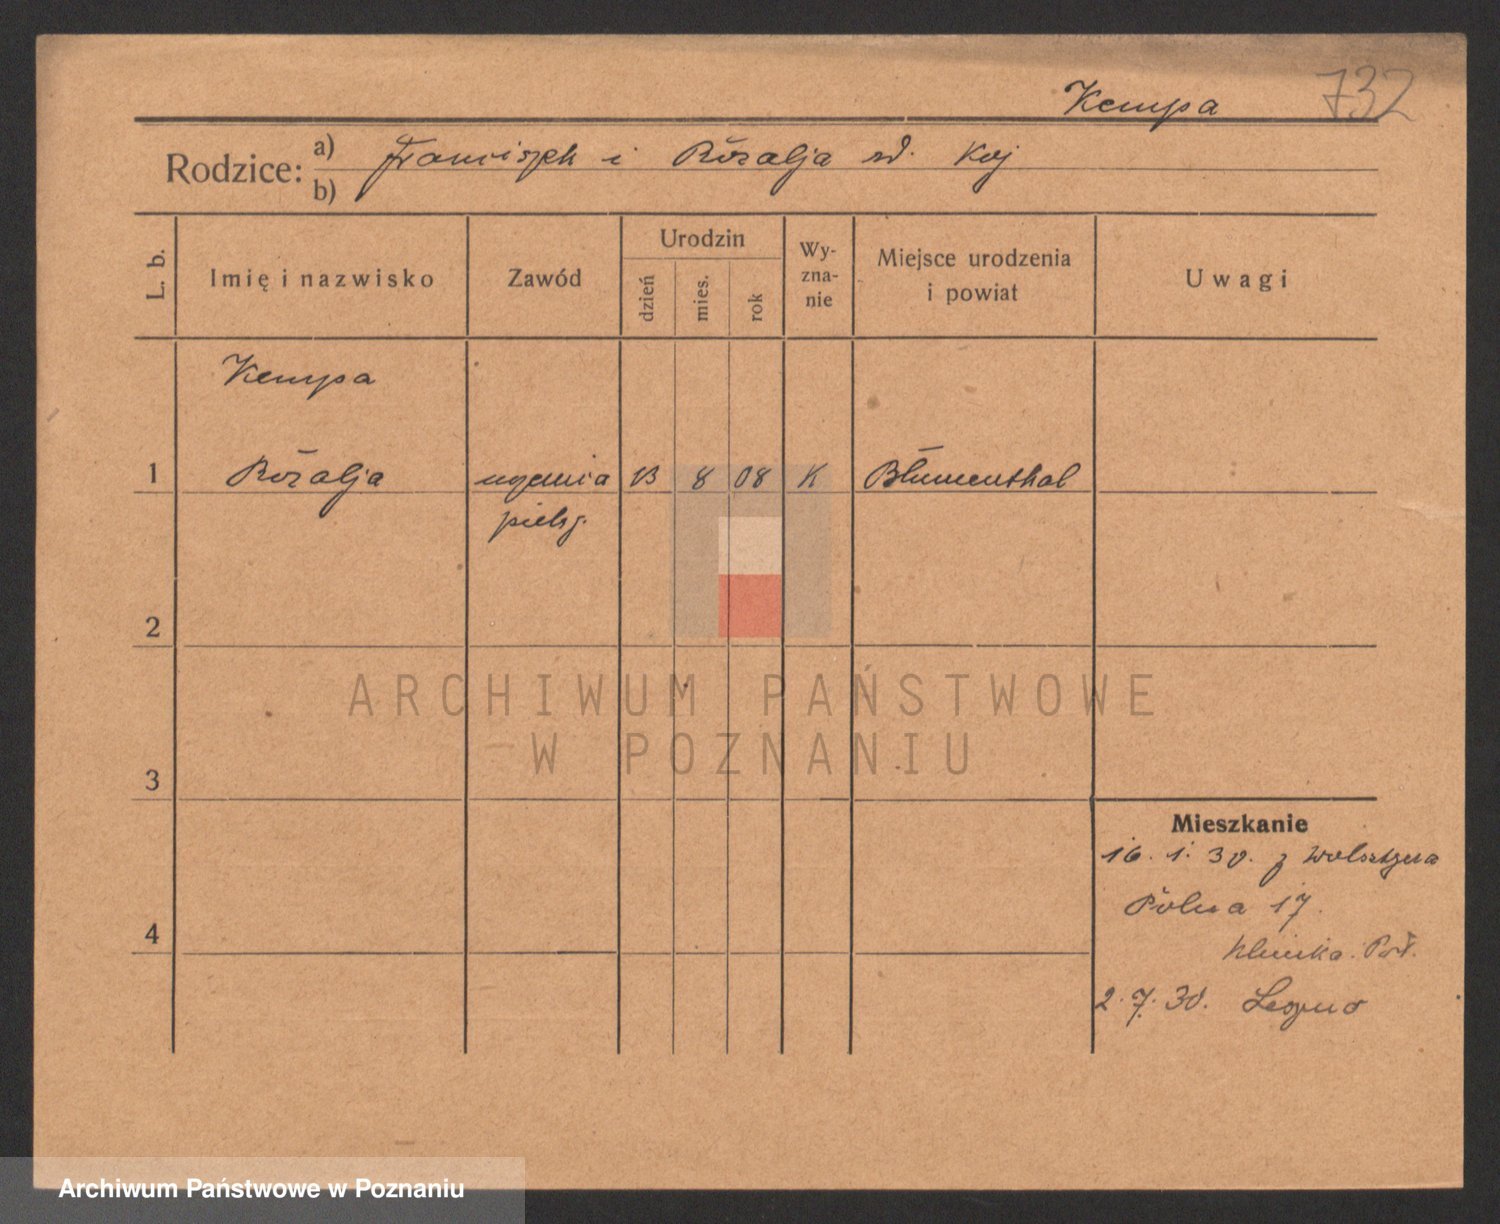 Kempa 732
Rodzice: a) Franciszek i Rózalja rd. Koj
b)
L. b.
Imię i nazwisko
Zawód
Urodzin
dzień
mies.
rok
Wy-
zna-
nie
Miejsce urodzenia
i powiat
Uwagi
Kempa
1 Rózalja uczenica 13 8 08 K Blumenthal
pielg.
2
ARCHIWUM PAŃSTWOWE
W POZNANIU
3
Mieszkanie
16. 1. 30. z Wolsztyna
Polna 17.
4
Klinika. Poł.
2. 7. 30.
Archiwum Państwowe w Poznaniu